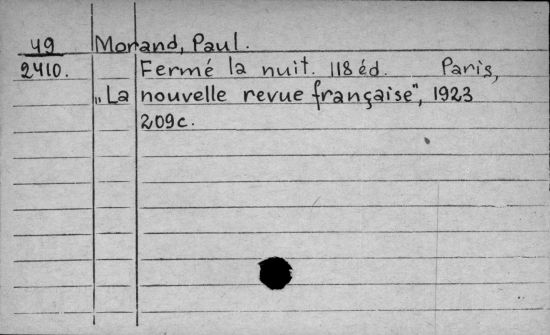 49 Morand, Paul.
2410. Fermé la nuit. 118 éd. Paris,
„La nouvelle revue française", 1923
209c.